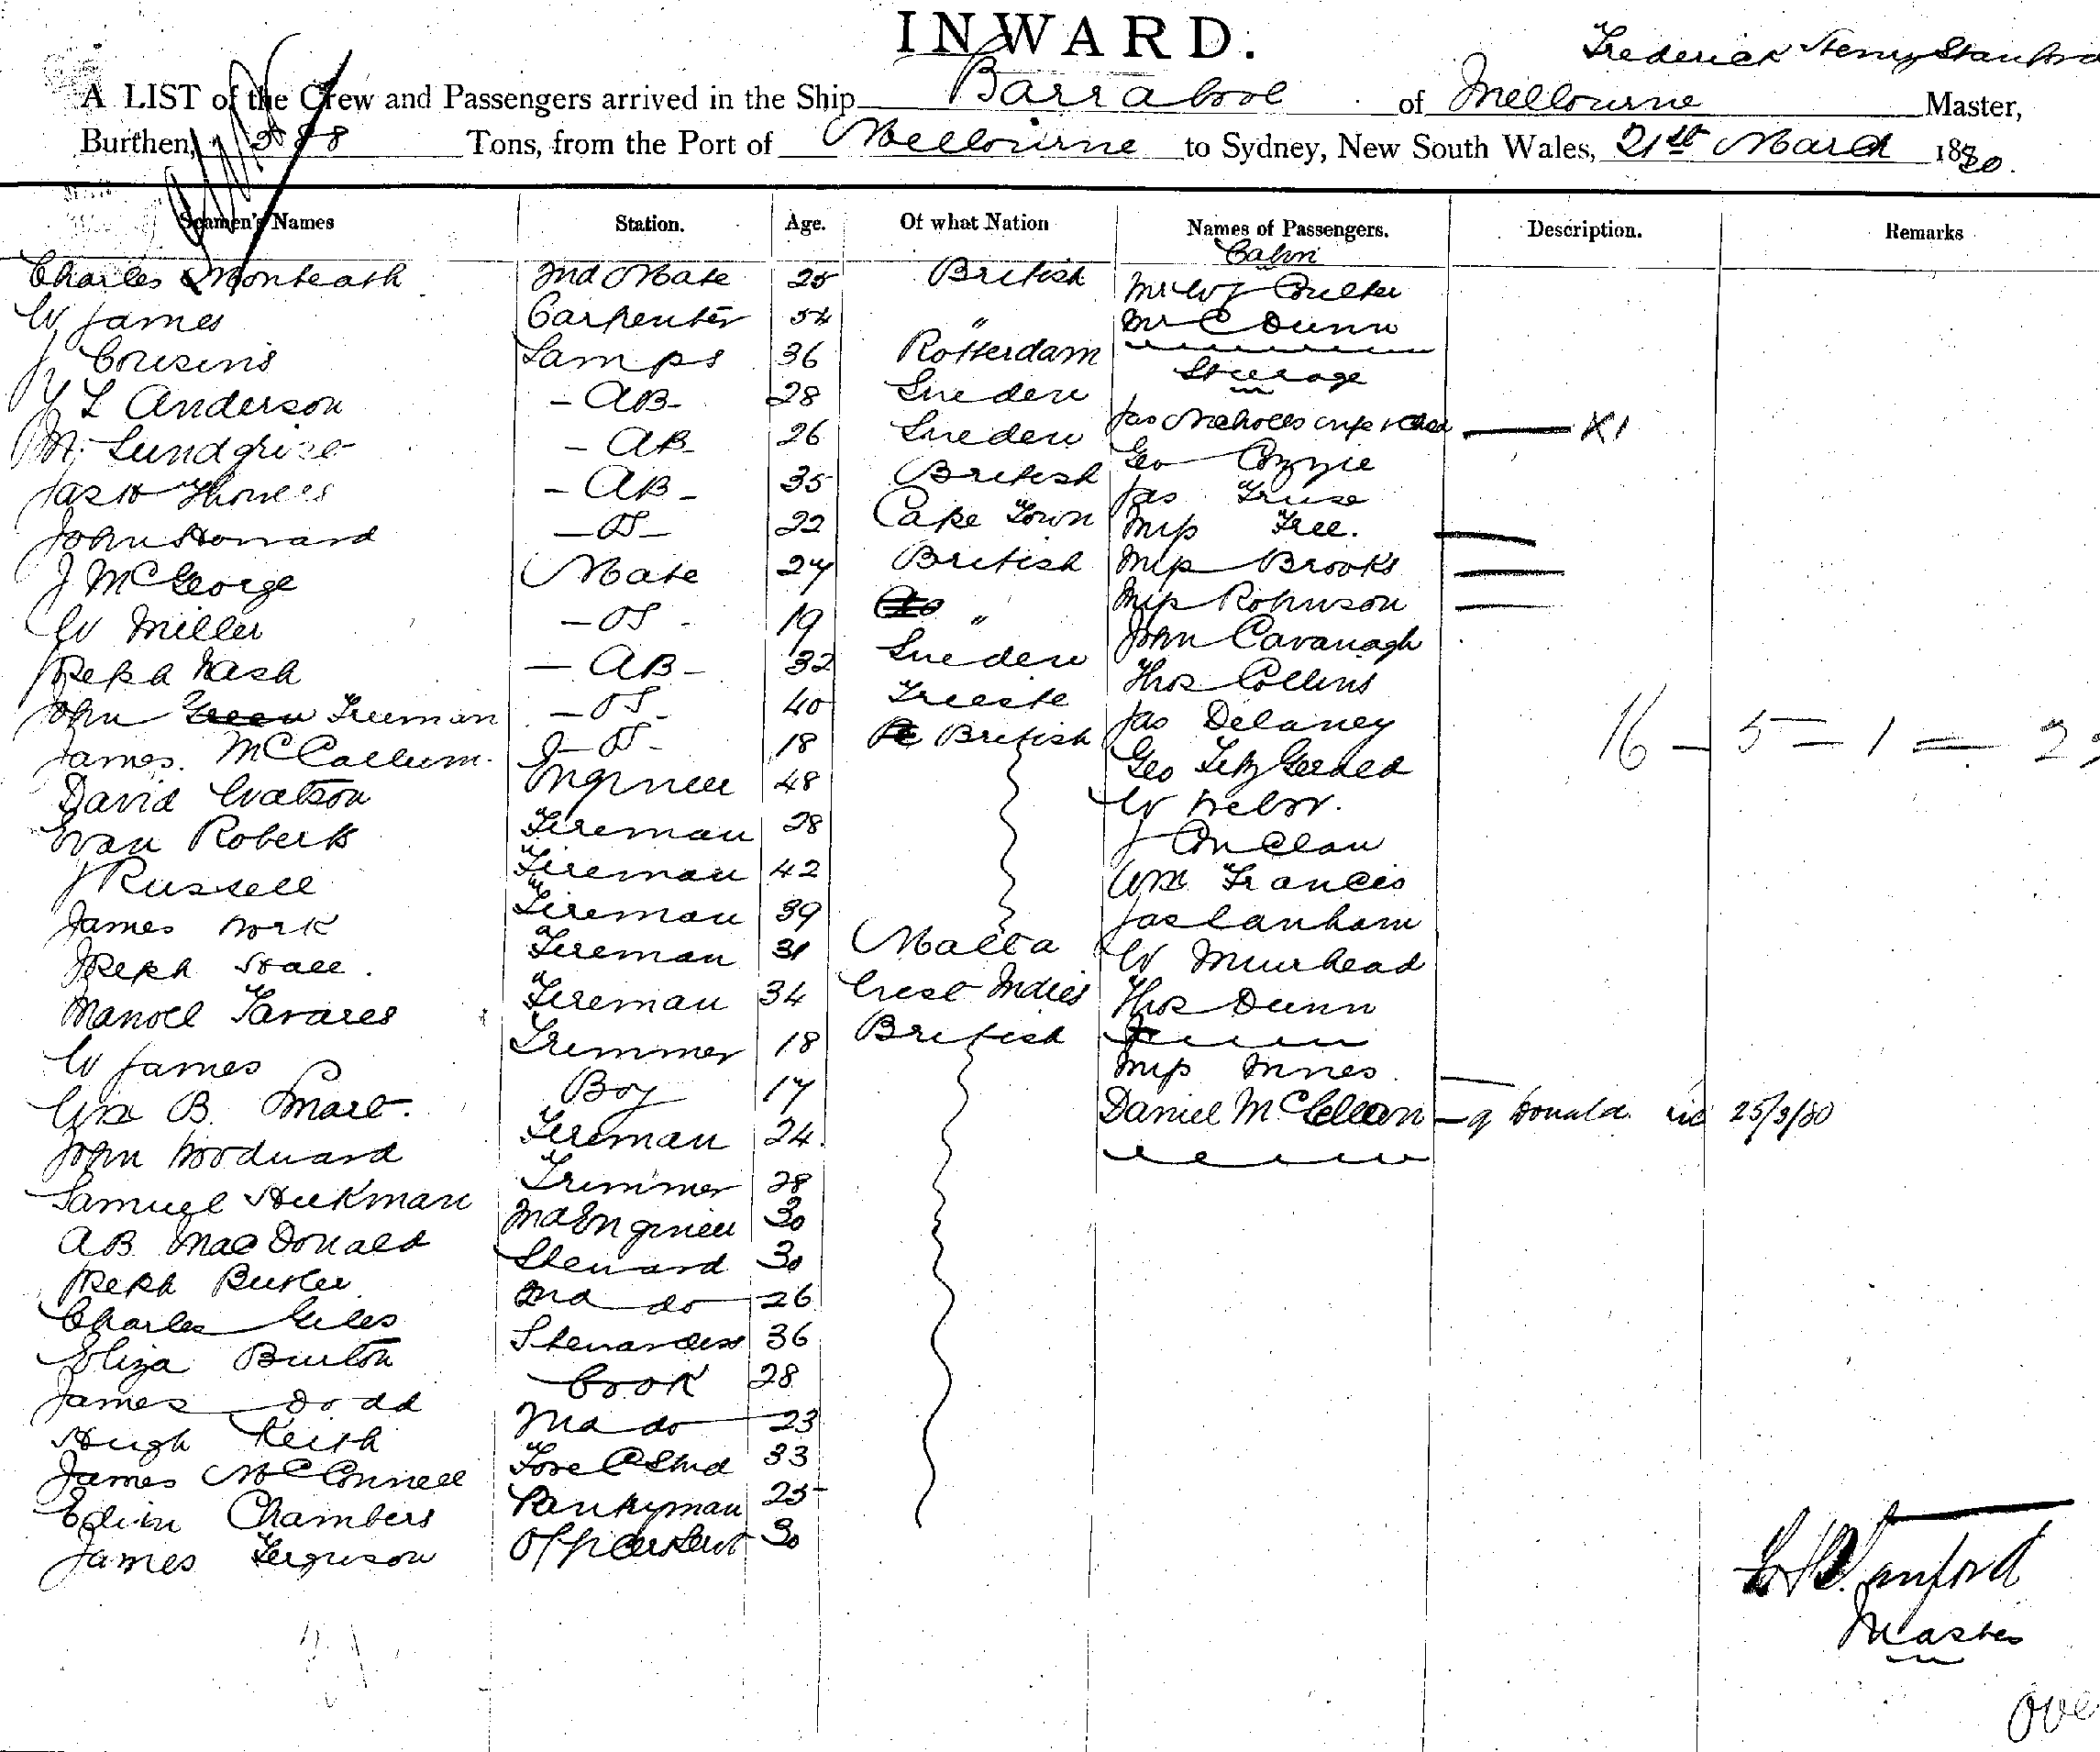 INWARD.
Frederick Henry Stanford
A LIST of the Crew and Passengers arrived in the Ship Barrabool of Melbourne Master,
Burthen, Tons, from the Port of Melbourne to Sydney, New South Wales, 21st March 1880.
Seamen's Names Station. Age. Of what Nation Names of Passengers. Description. Remarks
Cabin
Charles Monteath 2nd Mate 25 British Mr W J Coulter
W James Carpenter 54 " Mr C Dunn
J Cousins Lamps 36 Rotterdam
Steerage
L Anderson - AB - 28 Sweden Jas Nicholls
M. - AB - 26 Sweden Geo
Jas H - AB - 35 British Jas
John Howard - OS - 22 Cape Town Mrs Free.
J McGeorge Mate 27 British Mrs Brooks
W Miller - OS - 19 " Mrs Robinson
Joseph Nash - AB - 32 Sweden John Cavanagh
John Freeman - OS - 40 Trieste Thos Collins
James McCallum. - OS - 18 British Jas Delaney
16 - 5 = 1 =
David Watson Engineer 48 Geo FitzGerald
Evan Roberts Fireman 28 W Webb.
J Russell Fireman 42 J
James York Fireman 39 Wm Francis
Joseph Hall. Fireman 31 Malta Jas Lanham
Manoel Tavares Fireman 34 West Indies W Muirhead
W James Trimmer 18 British Thos Dunn
Wm B. Smart. Boy 17 Mrs Innes
John Woodward Fireman 24. Daniel McLellan Donald 25/3/80
Samuel Hickman Trimmer 28
AB MacDonald 2nd Engineer 30
Joseph Butler Steward 30
Charles Giles 2nd do 26
Eliza Burton Stewardess 36
James Dodd Cook 28
Hugh Keith 2nd do 23
James McConnell Fore C Stwd 33
Edwin Chambers Pantryman 25
James Ferguson Officers Servt 30
F H Stanford
Master